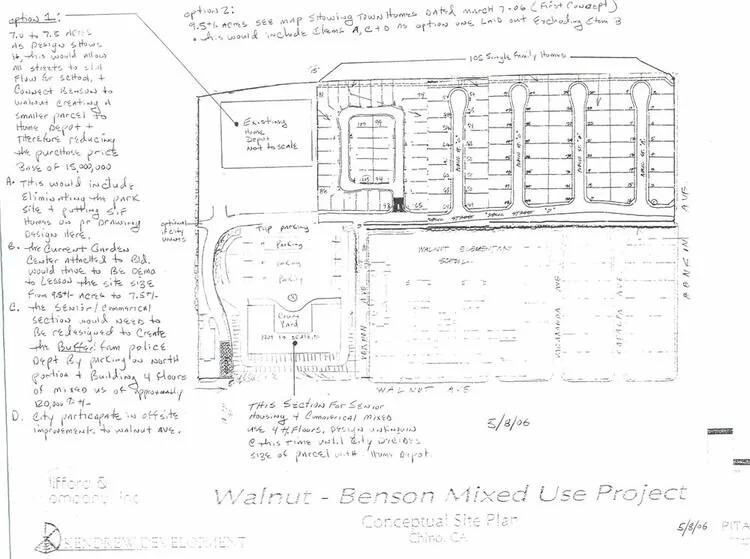 option 1:
7.0 to 7.5 Acres
As Design shows
it, this would allow
All streets to still
Flow for school, +
Connect Benson to
Walnut creating a
smaller parcel to
Home Depot +
Therefore reducing
the purchase price
Base of 15,000,000
A. This would include
Eliminating the park
site & putting S.F
Homes on per Drawing
Design Here.
B. The Current Garden
Center Attached to Bld.
would Have to Be Demo
to Lesson the site size
From 9.5+/- Acres to 7.5+/-
C. The Senior/Commerical
section would need to
Be redesigned to Create
the Buffer from police
Dept By parking on North
portion & Building 4 floors
of mixed us of approximately
120,000 +/-
D. City participate in offsite
improvements to Walnut Ave.
option 2:
9.5+/- Acres see map showing Town Homes Dated March 7-06 (First Concept)
• This would include Items A, C + D as option one laid out Excluding Item B
105 Single Family Homes
Existing
Home
Depot
Not to scale
optional
city
units
Top parking
" Parking
" Parking
" Parking
Court
Yard
Not to scale
WALNUT ELEMENTARY
SCHOOL
STREET
VERNON AVENUE
BENSON AVE
WALNUT AVE
This Section For Senior
Housing + Commerical Mixed
use 4 Floors, Design unknown
@ this time until City Decides
size of parcel with Home Depot.
5/8/06
Clifford &
Company, Inc
KENDREW DEVELOPMENT
Walnut - Benson Mixed Use Project
Conceptual Site Plan
Chino, CA
5/8/06
PITA